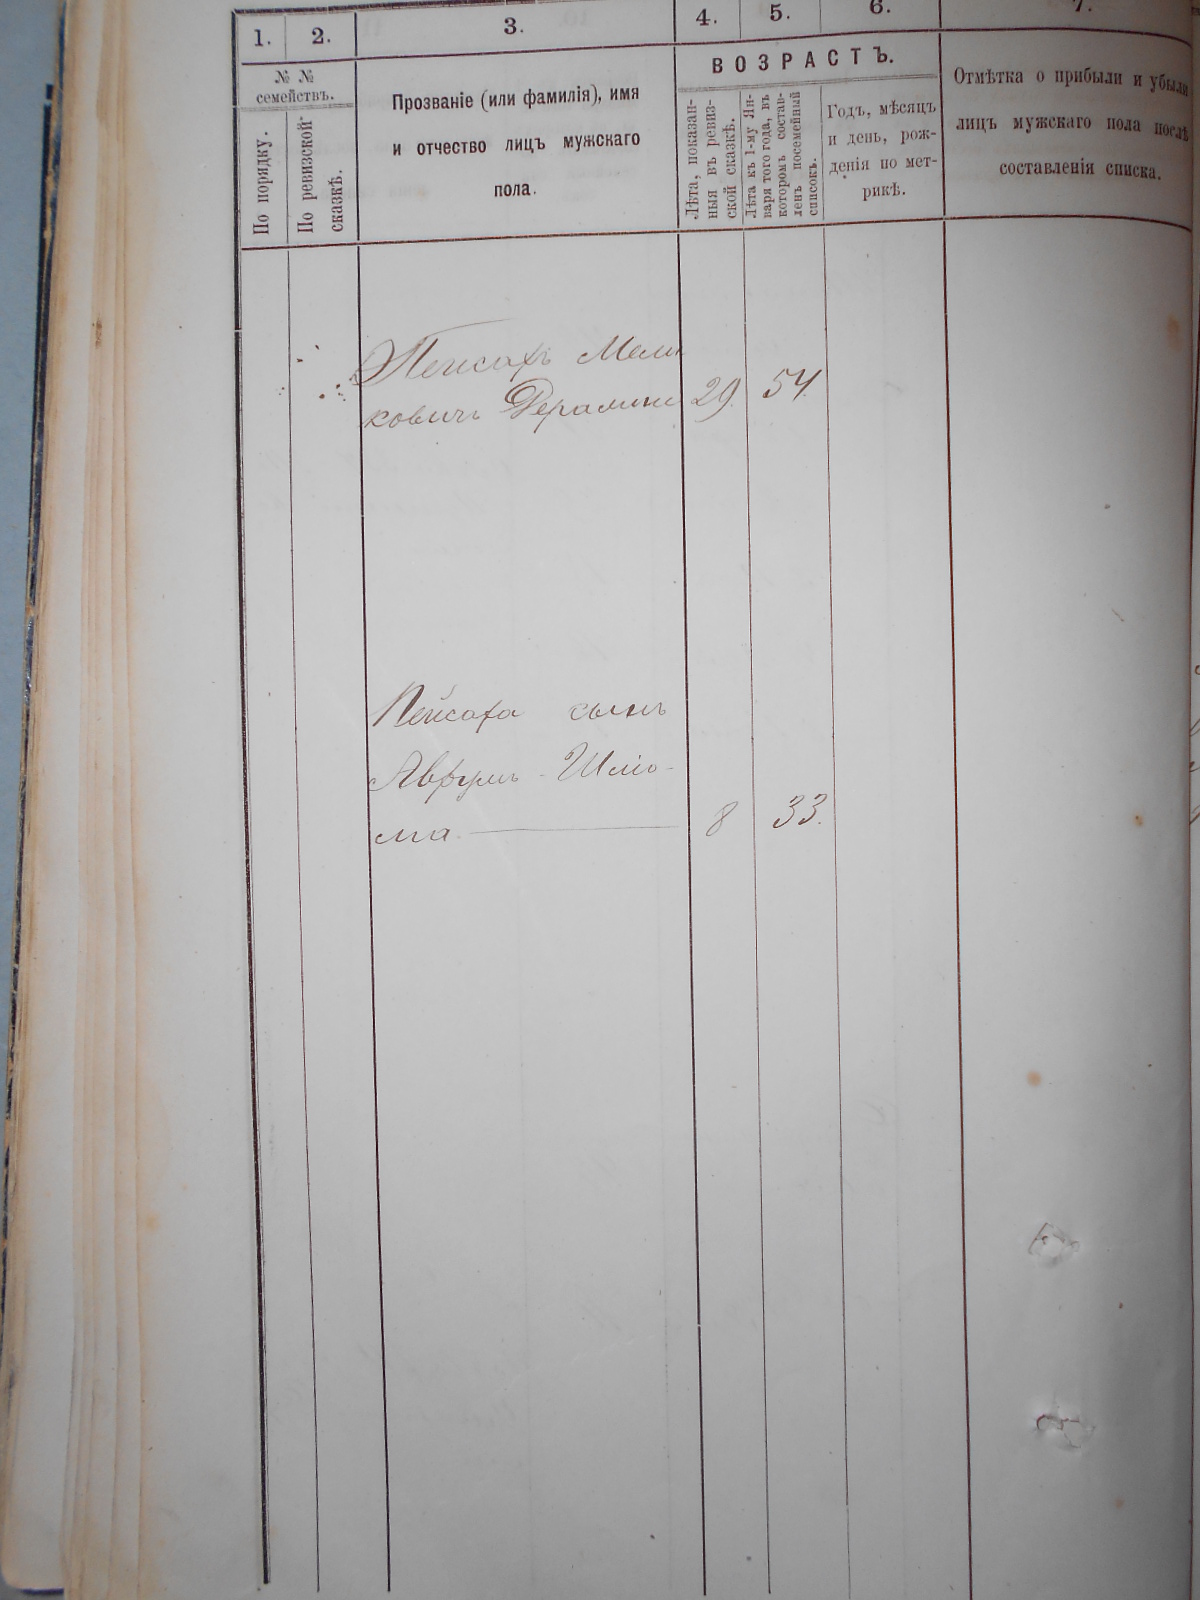 1. 2. 3. 4. 5. 6. 7.
№ № семействъ.
По порядку.
По ревизской сказкѣ.
Прозваніе (или фамилія), имя
и отчество лицъ мужскаго
пола.
ВОЗРАСТЪ.
Лѣта, показан-
ныя въ ревиз-
ской сказкѣ.
Лѣта къ 1-му Ян-
варя того года, въ
которомъ состав-
ленъ посемейный
списокъ.
Годъ, мѣсяцъ
и день, рож-
денія по мет-
рикѣ.
Отмѣтка о прибыли и убыли
лицъ мужскаго пола послѣ
составленія списка.
Пейсахъ
ковичъ 29. 54.
Пейсаха сынъ
Аврумъ - Шлио-
ма. 8 33.